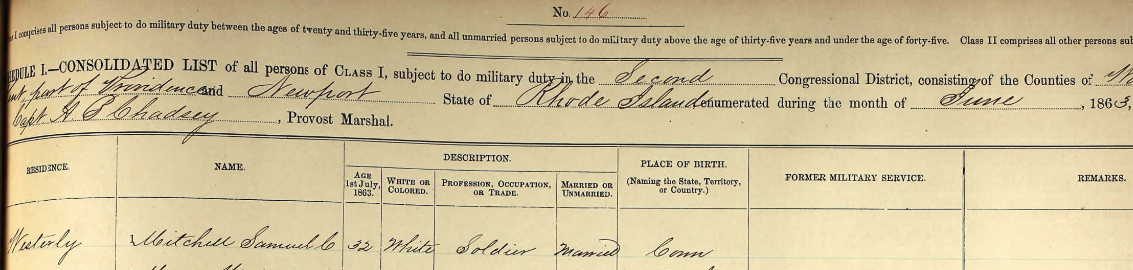 No. 146
I comprises all persons subject to do military duty between the ages of twenty and thirty-five years, and all unmarried persons subject to do military duty above the age of thirty-five years and under the age of forty-five. Class II comprises all other persons
SCHEDULE I.—CONSOLIDATED LIST of all persons of CLASS I, subject to do military duty in the Second Congressional District, consisting of the Counties of
part of Providence and Newport State of Rhode Island enumerated during the month of June, 1863,
Capt A B Chadsey, Provost Marshal.
RESIDENCE. NAME. DESCRIPTION. PLACE OF BIRTH. (Naming the State, Territory, or Country.) FORMER MILITARY SERVICE. REMARKS.
AGE 1st July, 1863. WHITE OR COLORED. PROFESSION, OCCUPATION, OR TRADE. MARRIED OR UNMARRIED.
Westerly Mitchell Samuel C 32 White Soldier Married Conn